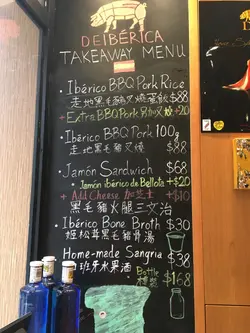 DEIBÉRICA
TAKEAWAY MENU
• Ibérico BBQ Pork Rice
走地黑毛豬叉燒飯 $88
+ Extra BBQ Pork 另加叉燒 +$20
• Ibérico BBQ Pork 100g
走地黑毛豬叉燒 $88
Jamón Sandwich $68
• Jamón ibérico de Bellota +$20
+ Add Cheese 加芝士 +$10
黑毛豬火腿三文治
Ibérico Bone Broth $30
姬松茸黑毛豬骨湯
Home-made Sangria $38
西班牙水果酒 Bottle
樽裝 $168